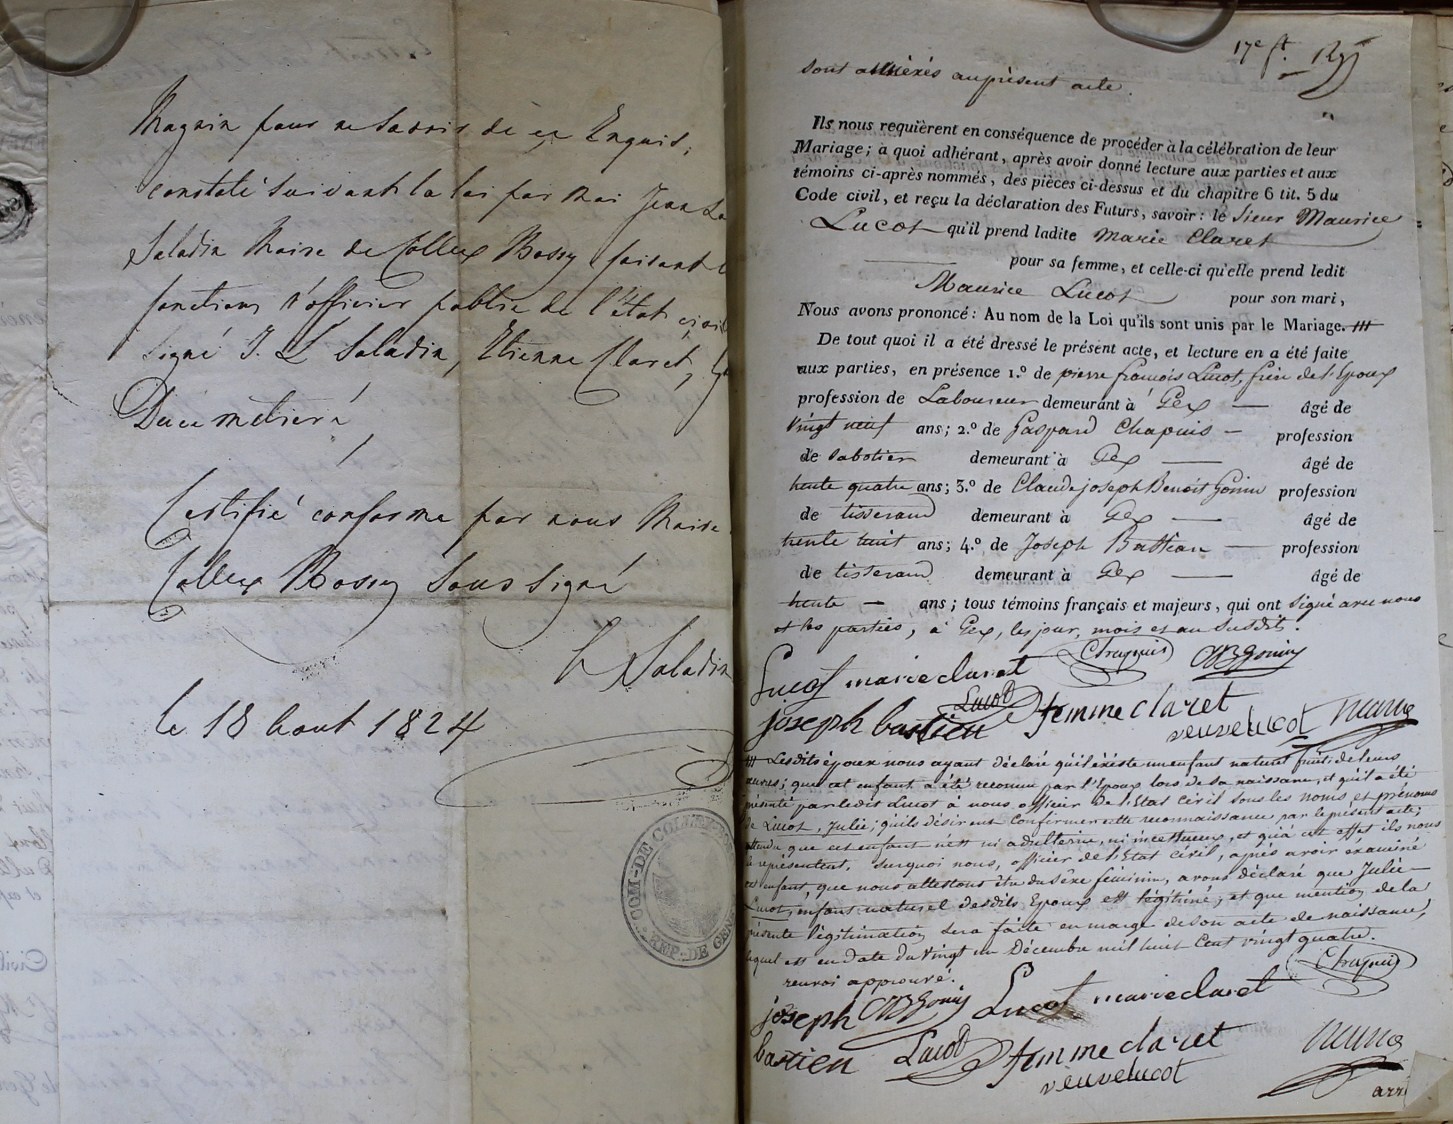 Magnin pour
constaté suivant la loi par moi Jean Lo
Saladin Maire de Collex Bossy faisant
fonctions d'officier public de l'état civil
Signé J. L Saladin, Etienne Claret,
Certifié conforme par nous Maire
Collex Bossy soussigné
L Saladin
le 18 Aout 1824
COM-DE COLLEX
REP-DE GEN
17e ft.
sont annexés au présent acte.
Ils nous requièrent en conséquence de procéder à la célébration de leur
Mariage; à quoi adhérant, après avoir donné lecture aux parties et aux
témoins ci-après nommés, des pièces ci-dessus et du chapitre 6 tit. 5 du
Code civil, et reçu la déclaration des Futurs, savoir: le Sieur Maurice
Lucot qu'il prend ladite Marie Claret
pour sa femme, et celle-ci qu'elle prend ledit
Maurice Lucot pour son mari,
Nous avons prononcé: Au nom de la Loi qu'ils sont unis par le Mariage. ///
De tout quoi il a été dressé le présent acte, et lecture en a été faite
aux parties, en présence 1.º de pierre françois Lucot, frère de l'Epoux
profession de Laboureur demeurant à Gex — âgé de
vingt neuf ans; 2.º de Gaspard Chapuis — profession
de sabotier demeurant à Gex — âgé de
trente quatre ans; 3.º de Claude joseph Benoit Gonin profession
de tisserand demeurant à Gex — âgé de
trente huit ans; 4.º de Joseph Bastian — profession
de tisserand demeurant à Gex — âgé de
trente — ans; tous témoins français et majeurs, qui ont signé avec nous
et les parties, à Gex, les jour, mois et an susdits.
Lucot marie claret Chapuis CJBGonin
joseph bastien Lucot femme claret
veuve lucot
/// Lesdits époux nous ayant déclaré qu'il éxiste un enfant naturel fruit de leurs
œuvres; que cet enfant a été reconnu par l'Epoux lors de sa naissance, et qu'il a été
présenté par ledit Lucot à nous officier de l'Etat Civil sous les noms et prénoms
de Lucot, Julie; qu'ils désirent confirmer cette reconnaissance par le présent acte;
attendu que cet enfant n'est ni adultérin, ni incestueux, et qu'à cet effet ils nous
le représentent, surquoi nous, officier de l'Etat Civil, après avoir examiné
cet enfant, que nous attestons être du sèxe féminin, avons déclaré que Julie
Lucot, enfant naturel desdits Epoux est légitimé; et que mention de la
présente légitimation sera faite en marge de son acte de naissance,
lequel est en date du vingt un Décembre mil huit cent vingt quatre.
renvoi approuvé. Chapuis
joseph CJBGonin Lucot marie claret
bastien Lucot femme claret
veuve lucot